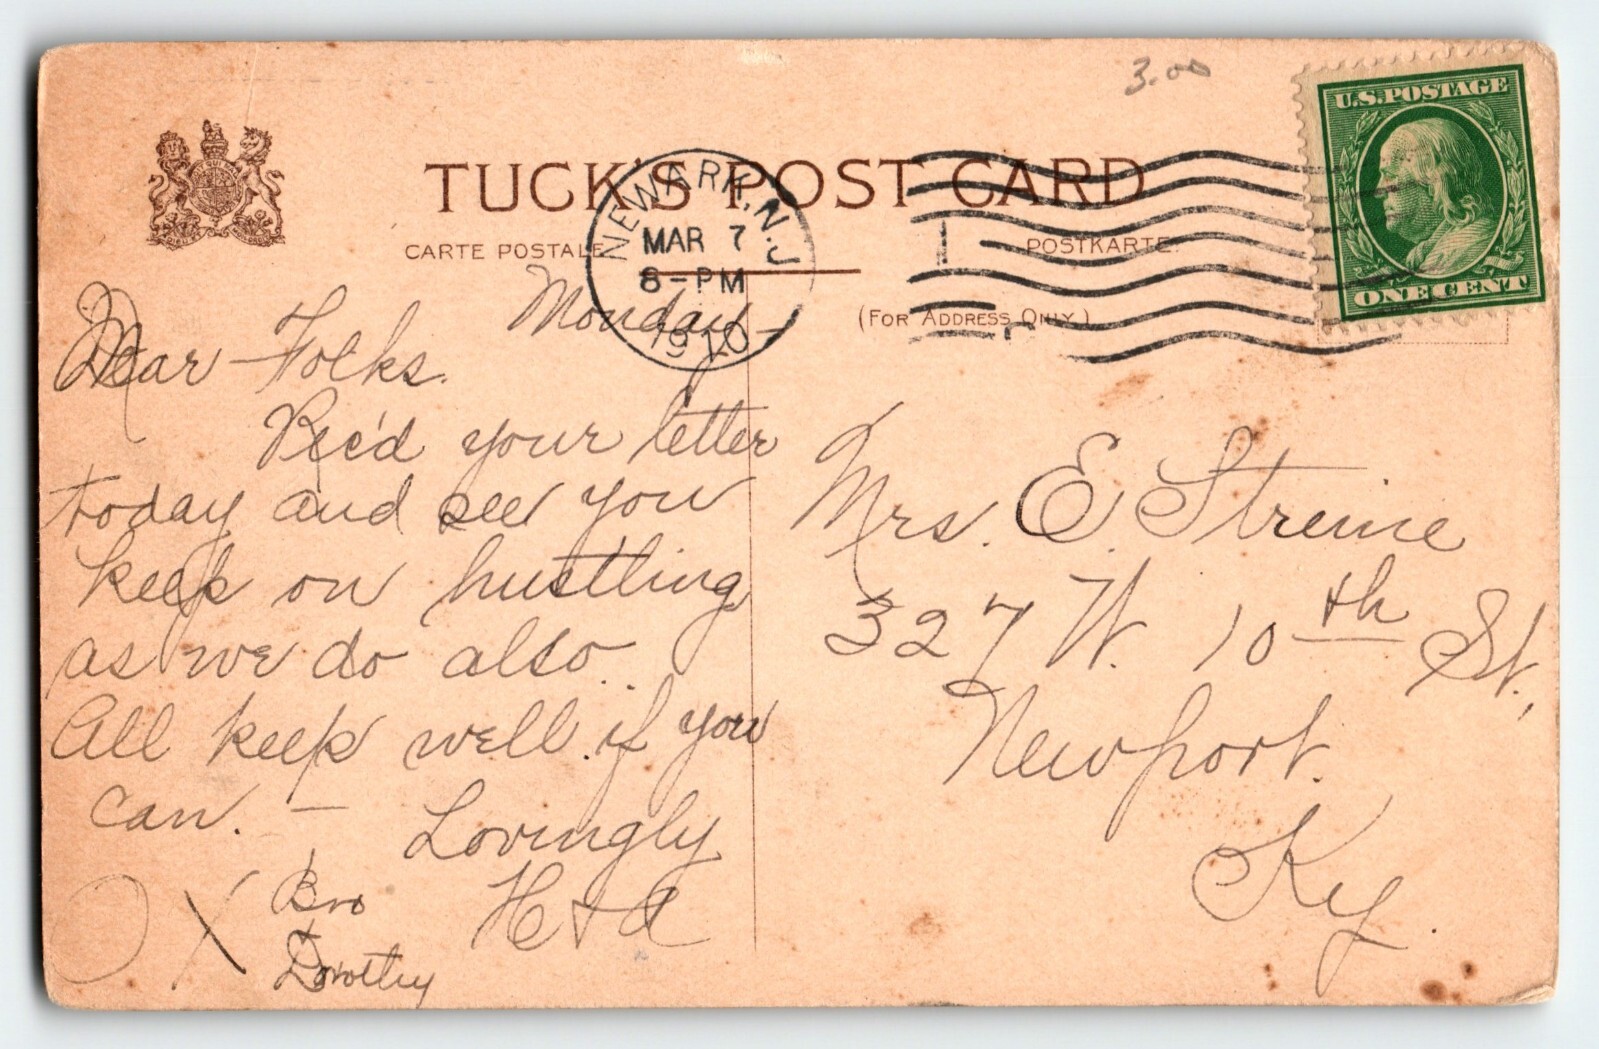 3.00
U.S. POSTAGE
ONE CENT
TUCK'S POST CARD
CARTE POSTALE
POSTKARTE.
(FOR ADDRESS ONLY.)
NEWARK, N.J.
MAR 7
8-PM
1910
Monday -
Dear Folks.
Rec'd your letter
today and see you
keep on hustling
as we do also.
All keep well if you
can. - Lovingly
H + A
O X Bro
+
Dorothy
Mrs. E. Streine
327 W. 10th St.,
Newport.
Ky.